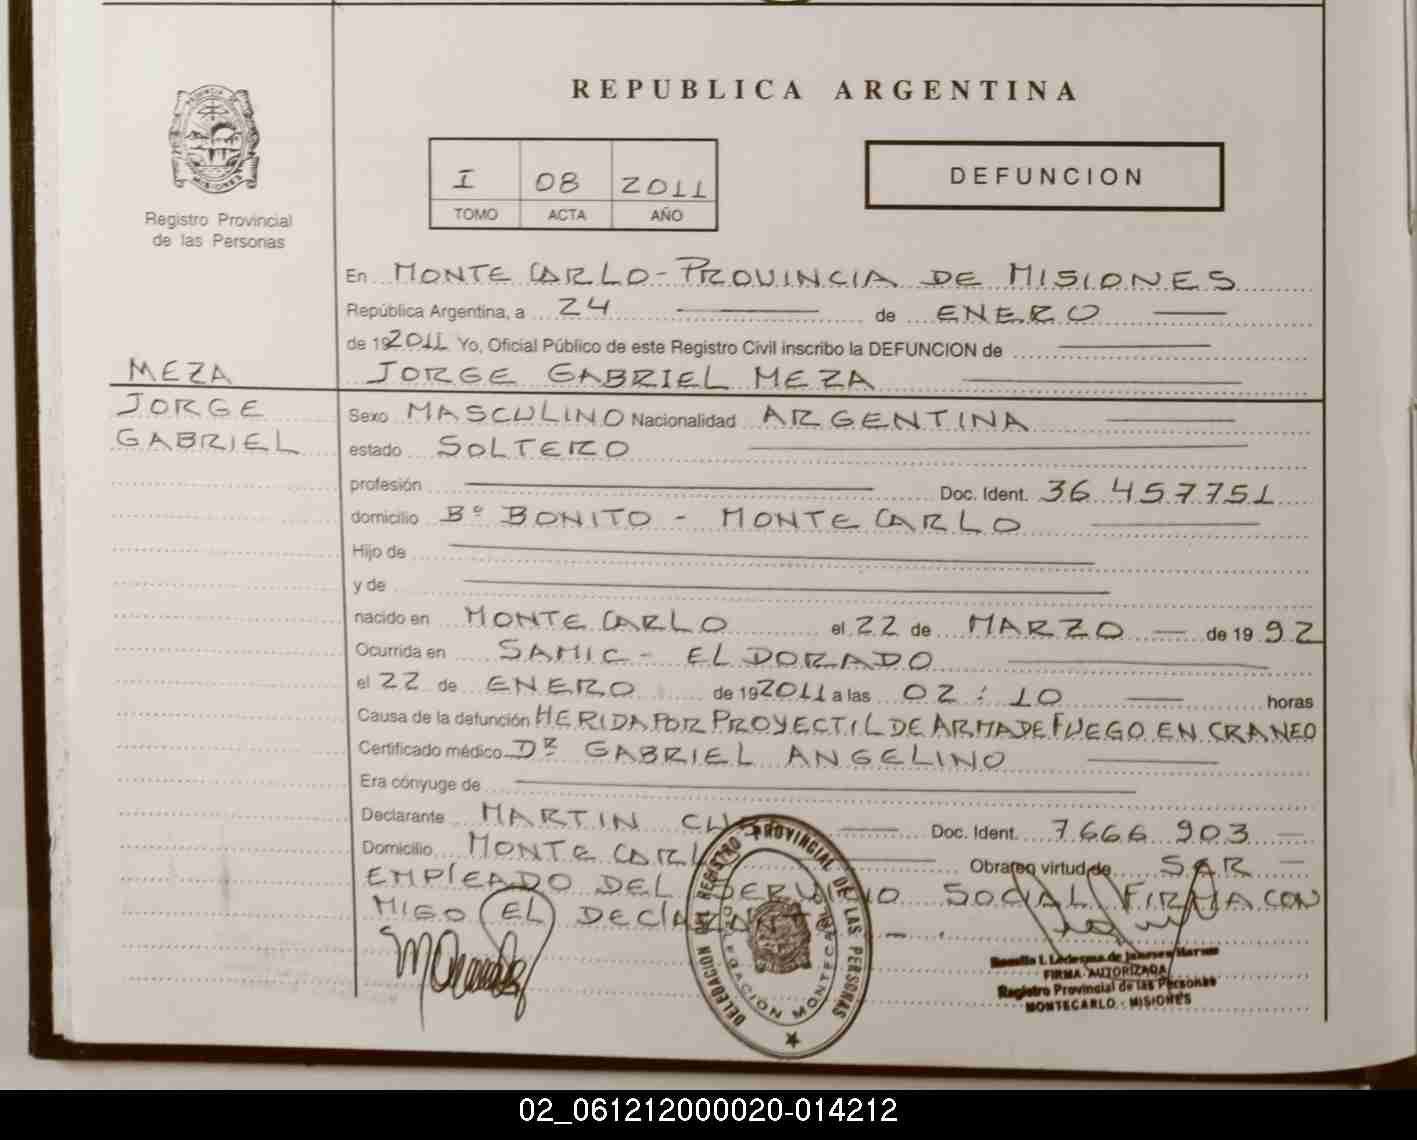 REPUBLICA ARGENTINA
PROVINCIA DE
MISIONES
Registro Provincial
de las Personas
I 08 2011
TOMO ACTA AÑO
DEFUNCION
En MONTE CARLO - PROVINCIA DE MISIONES
República Argentina, a 24 de ENERO
de 192011 Yo, Oficial Público de este Registro Civil inscribo la DEFUNCION de
JORGE GABRIEL MEZA
MEZA
JORGE
GABRIEL
Sexo MASCULINO Nacionalidad ARGENTINA
estado SOLTERO
profesión Doc. Ident. 36.457751
domicilio Bº BONITO - MONTE CARLO
Hijo de
y de
nacido en MONTE CARLO el 22 de MARZO de 19 92
Ocurrida en SAMIC - ELDORADO
el 22 de ENERO de 192011 a las 02:10 horas
Causa de la defunción HERIDA POR PROYECTIL DE ARMA DE FUEGO EN CRANEO
Certificado médico DR GABRIEL ANGELINO
Era cónyuge de
Declarante MARTIN Doc. Ident. 7.666.903
Domicilio MONTE CARL Obra en virtud de SAR
EMPLEADO DEL SERVICIO SOCIAL FIRMA CON
MIGO EL DECLARANTE
DELEGACION DEL REGISTRO PROVINCIAL DE LAS PERSONAS
DELEGACION MONTECARLO
FIRMA AUTORIZADA
Registro Provincial de las Personas
MONTECARLO - MISIONES
02_061212000020-014212